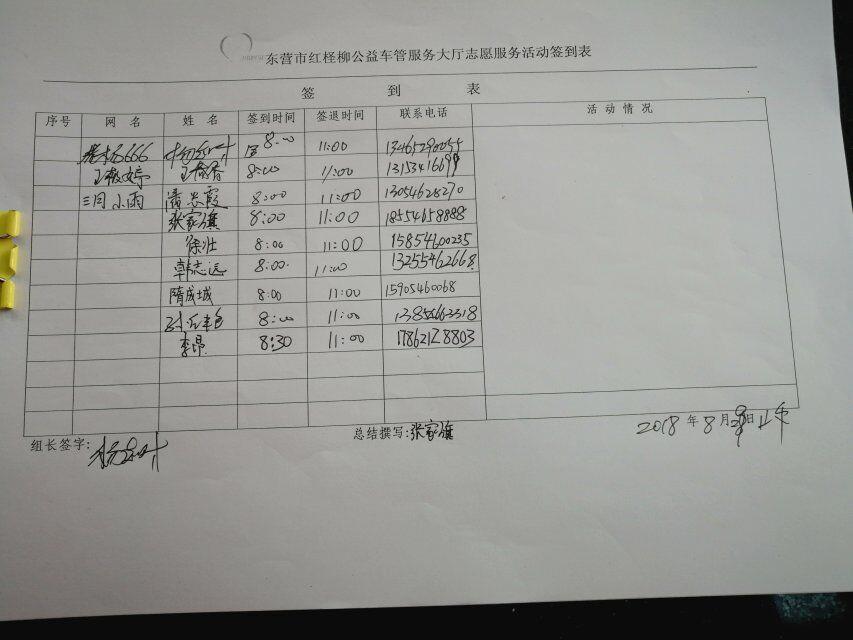 东营市红柽柳公益车管服务大厅志愿服务活动签到表
签 到 表
序号 网 名 姓 名 签到时间 签退时间 联系电话 活 动 情 况
666 8:00 11:00 13465290055
王 8:00 11:00
三月小雨 潘志霞 8:00 11:00 13054628270
张家旗 8:00 11:00 18554658888
徐壮 8:00 11:00 15854600235
韩志远 8:00 11:00 13255462668
隋成城 8:00 11:00 15905460068
8:00 11:00
李昂 8:30 11:00 17862128803
组长签字: 总结撰写:张家旗 2018 年 8 月 日 上午